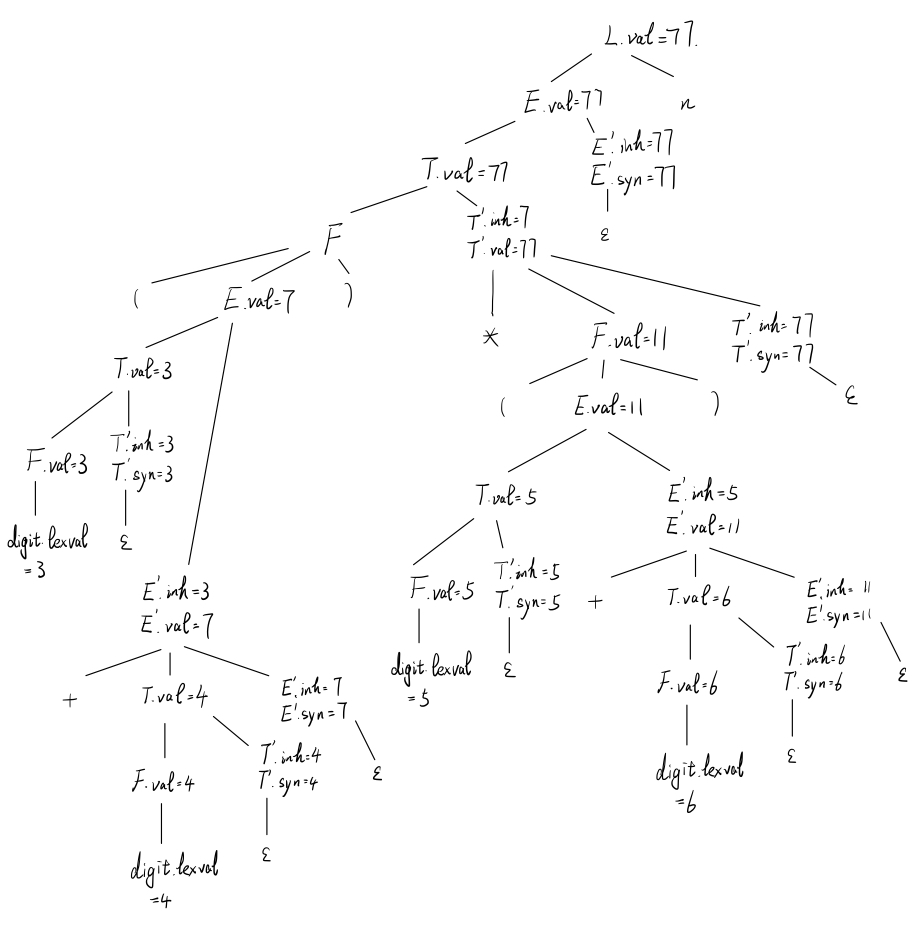 L.val=77.
E.val=77
n
E'.inh=77
E'.syn=77
ε
T.val=77
T'.inh=7
T'.val=77
F
(
E.val=7
)
*
F.val=11
T'.inh=77
T'.syn=77
ε
T.val=3
(
E.val=11
)
F.val=3
T'.inh=3
T'.syn=3
digit.lexval
=3
ε
T.val=5
E'.inh=5
E'.val=11
E'.inh=3
E'.val=7
F.val=5
T'.inh=5
T'.syn=5
+
T.val=6
E'.inh=11
E'.syn=11
digit.lexval
=5
ε
ε
+
T.val=4
E'.inh=7
E'.syn=7
F.val=6
T'.inh=6
T'.syn=6
F.val=4
T'.inh=4
T'.syn=4
ε
digit.lexval
=6
ε
digit.lexval
=4
ε